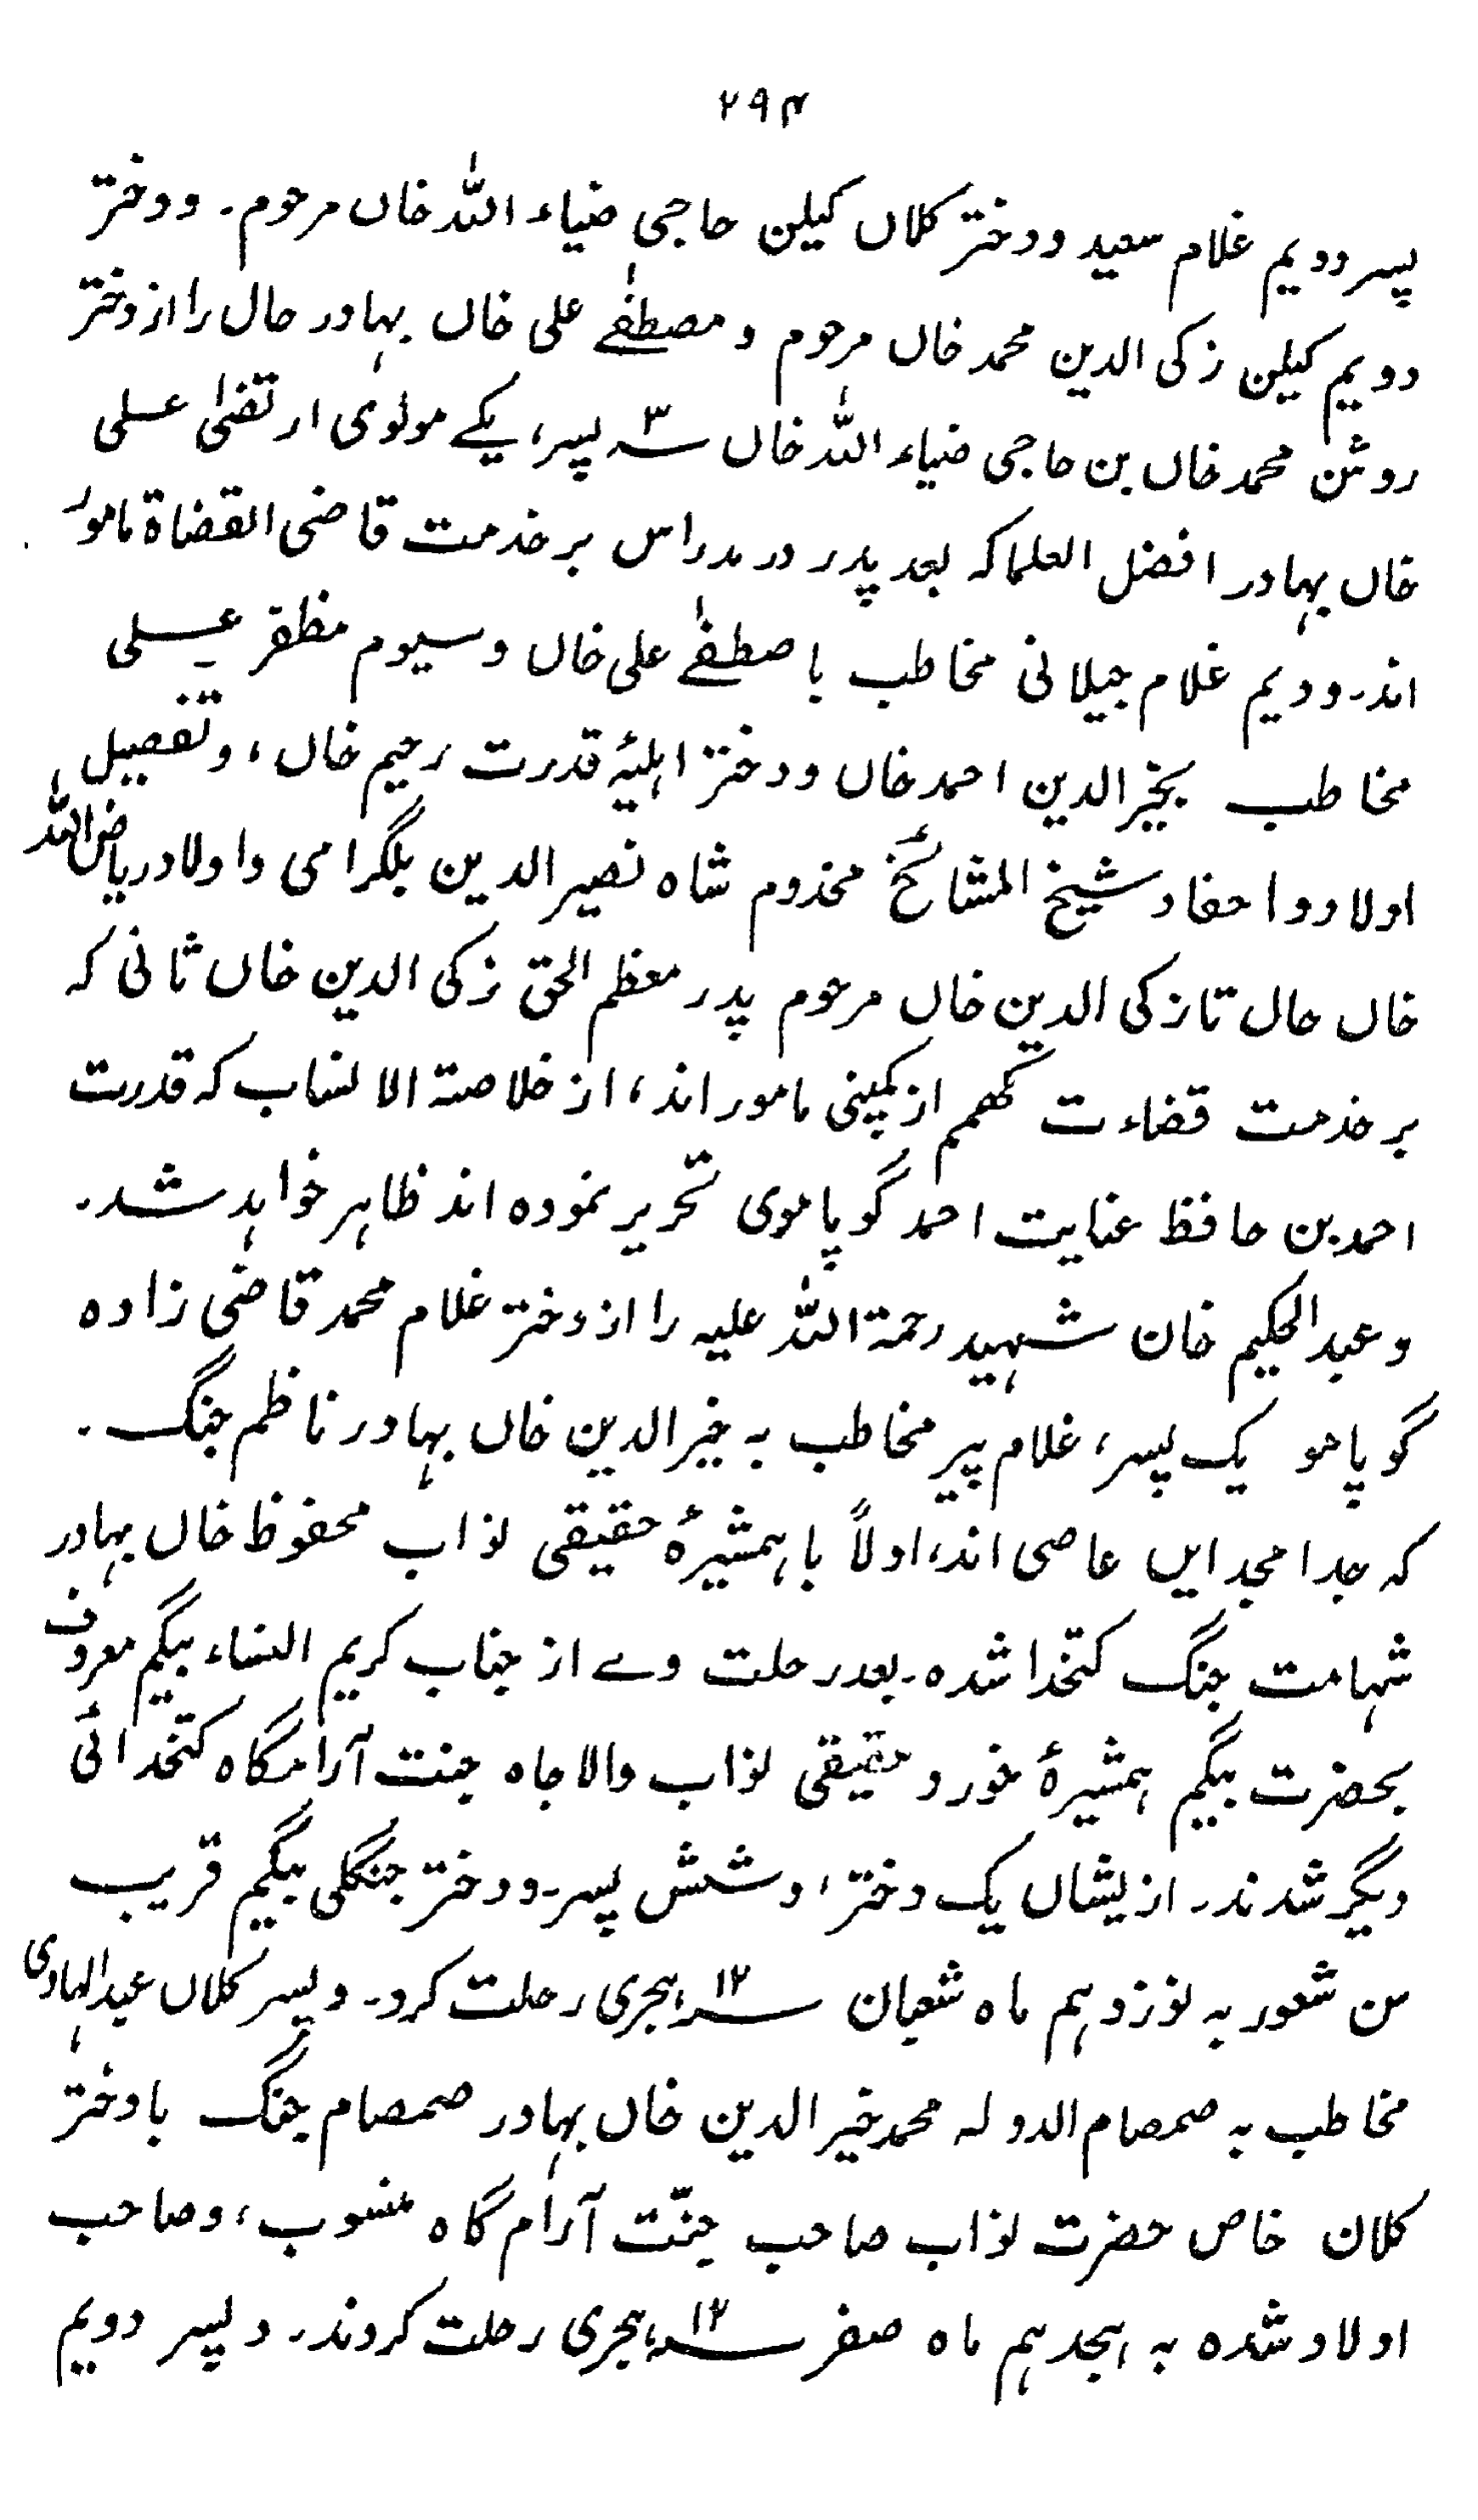 ۲۹۴
پسر دویم غلام سعید و دختر کلاں کیلن حاجی ضیاء اللہ خاں مرحوم۔ و دختر
دویم کیلن زکی الدین محمد خاں مرحوم و مصطفےٰ علی خاں بہادر حال را از دختر
روشن محمد خاں بن حاجی ضیاء اللہ خاں سہ۳ پسر، یکے مولوی ارتضیٰ علی
خاں بہادر افضل العلما کہ بعد پدر در مدراس بر خدمت قاضی القضاۃ مامور
اند۔ و دیم غلام جیلانی مخاطب با صطفےٰ علی خاں و سیوم مظفر علی
مخاطب بخیر الدین احمد خاں و دختر اہلیۂ قدرت رحیم خاں، و تفصیل
اولاد و احفاد شیخ المشائخ مخدوم شاہ نصیر الدین بلگرامی و اولاد ریاض اللہ
خاں حال تا زکی الدین خاں مرحوم پدر معظم الحق زکی الدین خاں ثانی کہ
بر خدمت قضاءت کھمم از کمپنی مامور اند، از خلاصۃ الانساب کہ قدرت
احمد بن حافظ عنایت احمد گوپاموی تحریر نمودہ اند ظاہر خواہد شد۔
و عبد الحکیم خان شہید رحمۃ اللہ علیہ را از دختر غلام محمد قاضی زادہ
گوپامو یک پسر، غلام پیر مخاطب بہ خیر الدین خاں بہادر ناظم جنگ۔
کہ جد امجد ایں عاصی اند، اولاً با ہمشیرۂ حقیقی نواب محفوظ خاں بہادر
شہامت جنگ کتخدا شدہ۔ بعد رحلت وے از جناب کریم النساء بیگم معروف
بحضرت بیگم ہمشیرۂ خورد حقیقی نواب والاجاہ جنت آرامگاہ کتخدائی
دیگر شدند۔ از یشاں یک دختر، و شش پسر۔ و دختر جنگلی بیگم قریب
سن شعور بہ نوزدہم ماہ شعبان سنہ ۱۲ ہجری رحلت کرد۔ و پسر کلاں عبد الہادی
مخاطب بہ صمصام الدولہ محمد خیر الدین خاں بہادر صمصام جنگ با دختر
کلان خاص حضرت نواب صاحب جنّت آرام گاہ منسوب، و صاحب
اولاد شدہ بہ ہجدہم ماہ صفر سنہ ۱۲ ہجری رحلت کردند۔ و پسر دویم